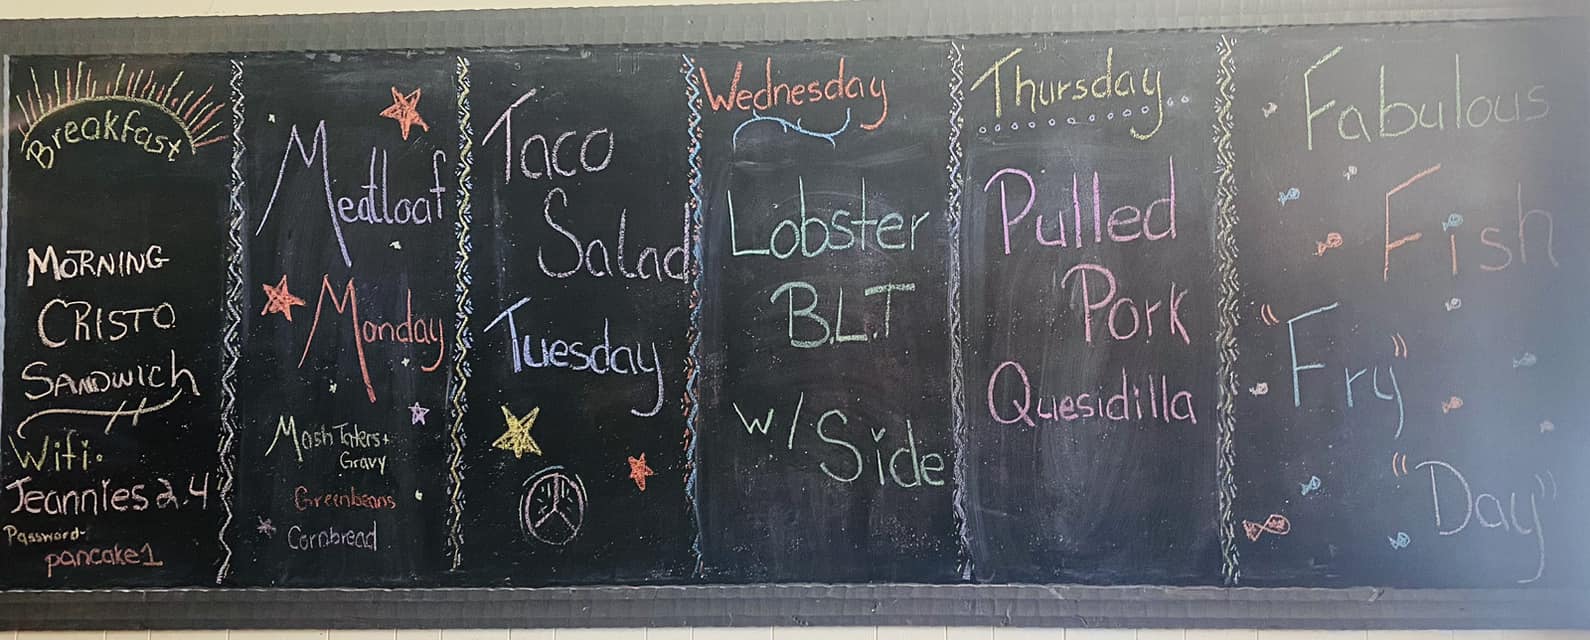 Breakfast
MORNING
CRISTO
SANDWICH
Wifi.
Jeannies 2.4
Password-
pancake1
Meatloaf
Monday
Mash Taters+
Gravy
Greenbeans
Cornbread
Taco
Salad
Tuesday
Wednesday
Lobster
B.L.T
w/ Side
Thursday
Pulled
Pork
Quesidilla
Fabulous
Fish
"Fry"
"Day"